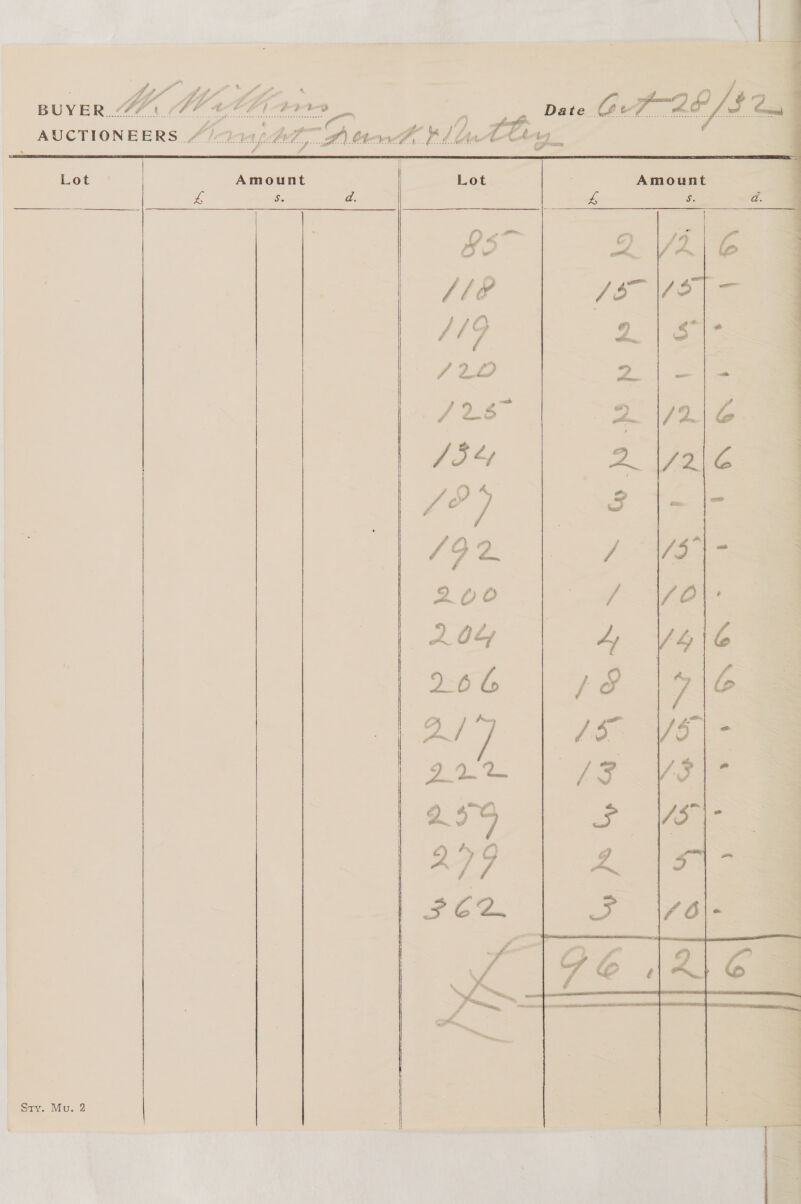 BUYER W. Wilkins Date Oct 28/32
AUCTIONEERS Knight, Frank & Rutley
Lot Amount Lot Amount
£ s. d. £ s. d.
85 2 12 6
118 15 15 -
119 2 5 -
120 2 - -
125 2 12 6
134 2 12 6
187 3 - -
192 1 15 -
200 1 10 -
204 4 14 6
206 18 7 6
217 15 15 -
222 13 13 -
259 3 15 -
279 2 5 -
362 3 10 -
£ 96 . 2 6
Sty. Mu. 2